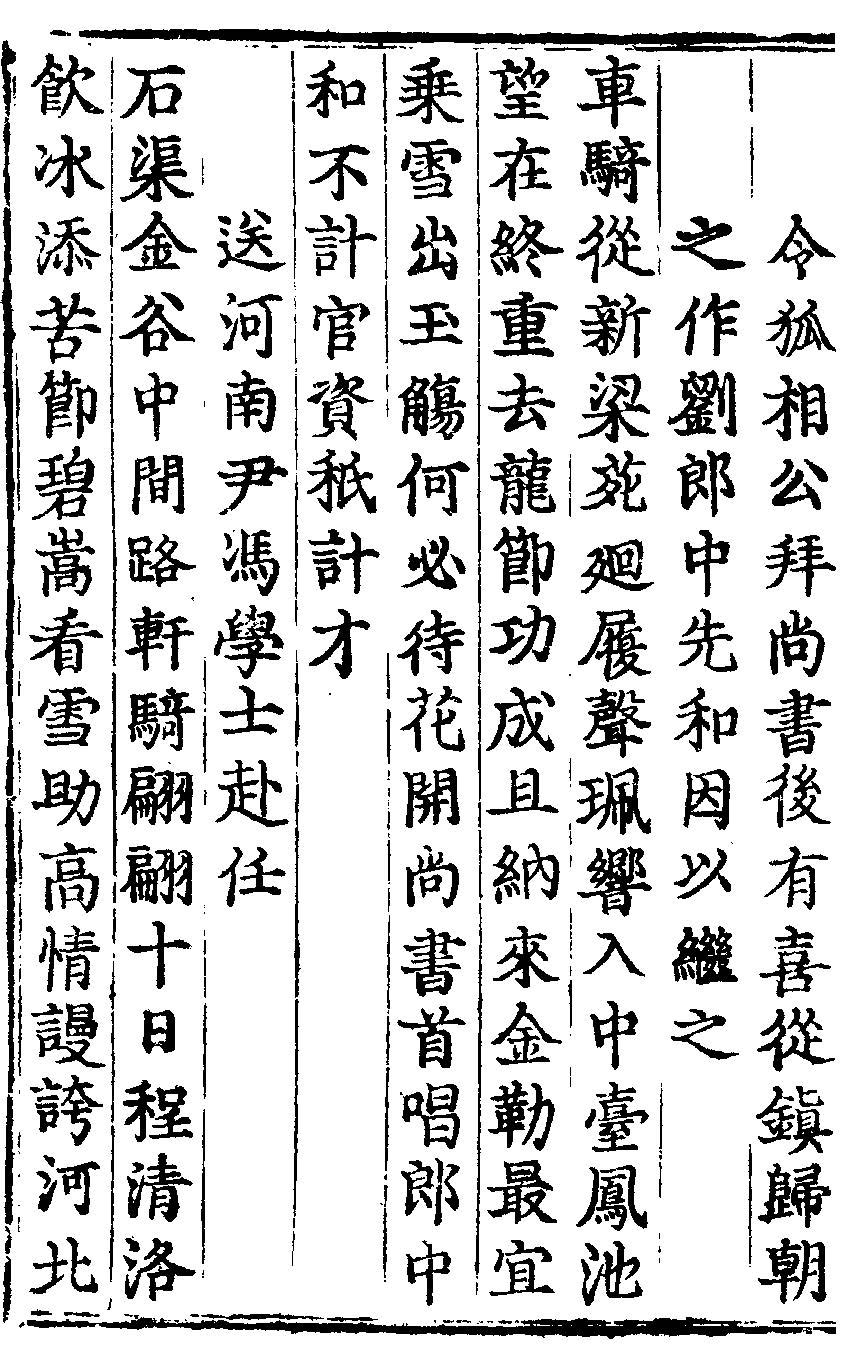 令狐相公拜尚書後有喜從鎮歸朝
之作劉郎中先和因以繼之
車騎從新梁苑廻履聲珮響入中臺鳳池
望在終重去龍節功成且納來金勒最宜
乘雪出玉觴何必待花開尚書首唱郎中
和不計官資秖計才
送河南尹馮學士赴任
石渠金谷中間路軒騎翩翩十日程清洛
飲冰添苦節碧嵩看雪助高情謾誇河北